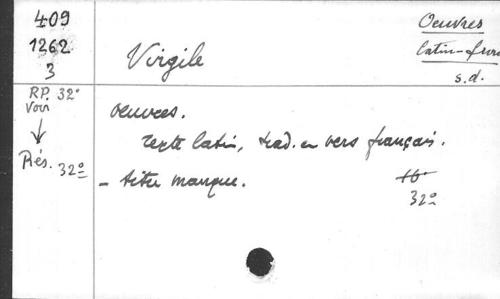 409
1262
3
Virgile
Oeuvres
latin-fran
s.d.
RP. 32º
Voir
↓
Rés. 32º
Oeuvres.
Texte latin, trad. en vers français.
- titre manque.
16º
32º